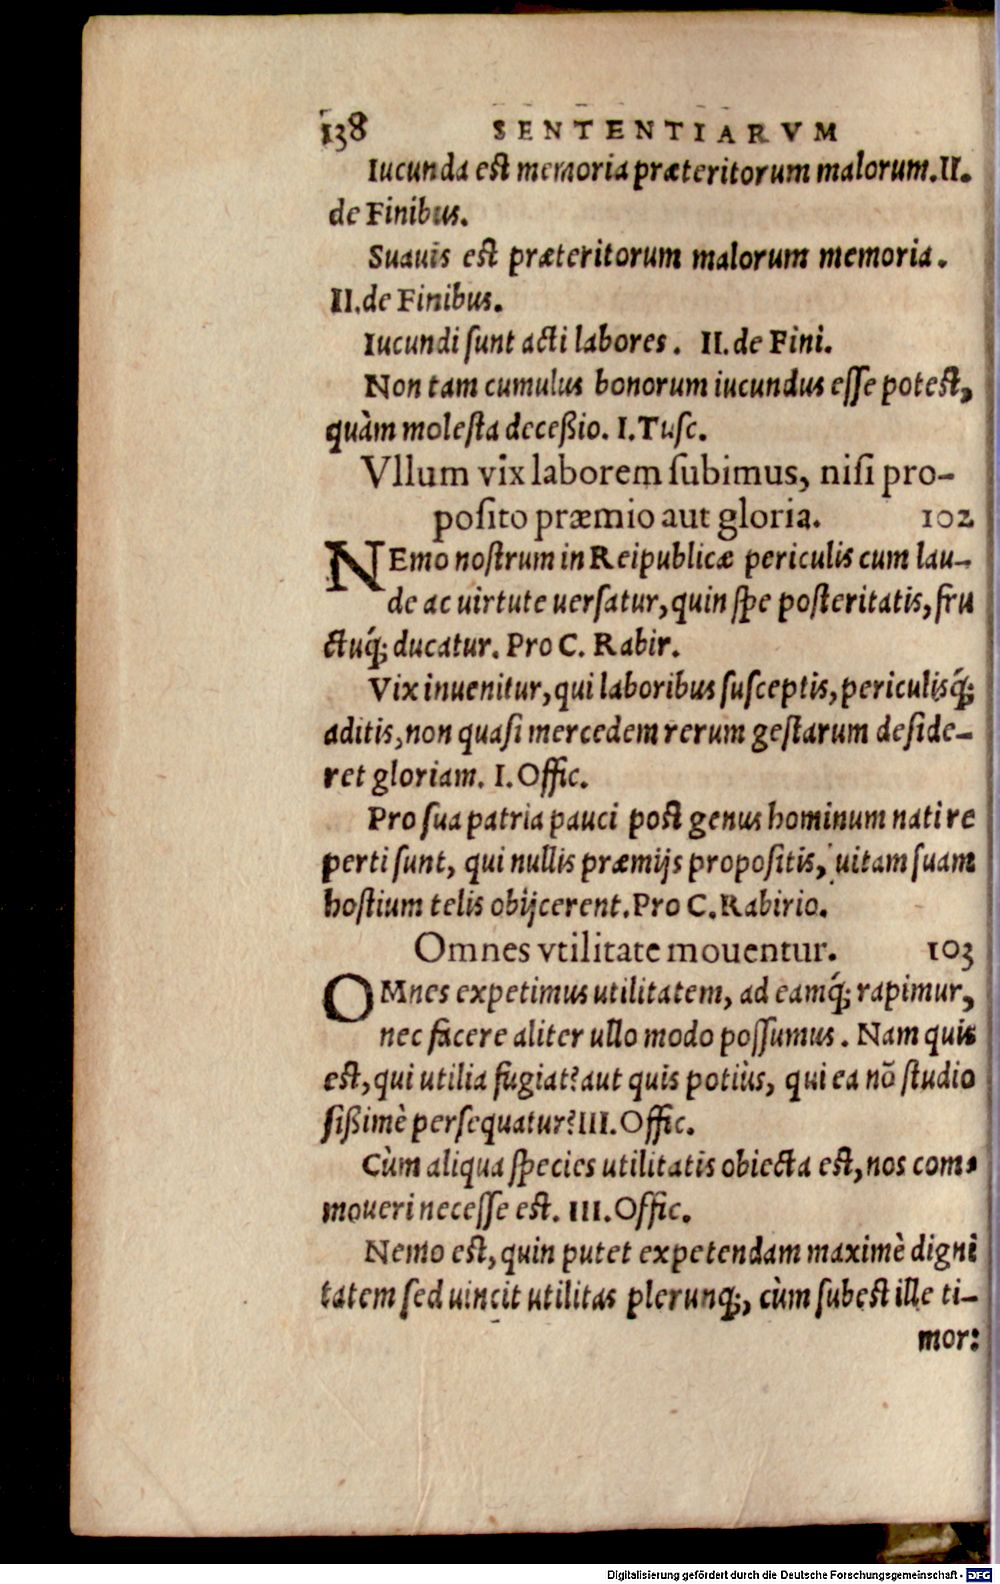 138 SENTENTIARVM
Iucunda est memoria præteritorum malorum. II.
de Finibus.
Suauis est præteritorum malorum memoria.
II. de Finibus.
Iucundi sunt acti labores. II. de Fini.
Non tam cumulus bonorum iucundus esse potest,
quàm molesta deceßio. I. Tusc.
Vllum vix laborem subimus, nisi pro-
posito præmio aut gloria. 102
NEmo nostrum in Reipublicæ periculis cum lau-
de ac uirtute uersatur, quin spe posteritatis, fru
ctuq́; ducatur. Pro C. Rabir.
Vix inuenitur, qui laboribus susceptis, periculisq́;
aditis, non quasi mercedem rerum gestarum deside-
ret gloriam. I. Offic.
Pro sua patria pauci post genus hominum nati re
perti sunt, qui nullis præmijs propositis, uitam suam
hostium telis obijcerent. Pro C. Rabirio.
Omnes vtilitate mouentur. 103
OMnes expetimus utilitatem, ad eamq́; rapimur,
nec facere aliter ullo modo possumus. Nam quis
est, qui utilia fugiat? aut quis potiùs, qui ea nõ studio
sißimè persequatur? III. Offic.
Cùm aliqua species utilitatis obiecta est, nos com-
moueri necesse est. III. Offic.
Nemo est, quin putet expetendam maximè digni
tatem sed uincit utilitas plerunq;, cùm subest ille ti-
mor:
Digitalisierung gefördert durch die Deutsche Forschungsgemeinschaft - DFG